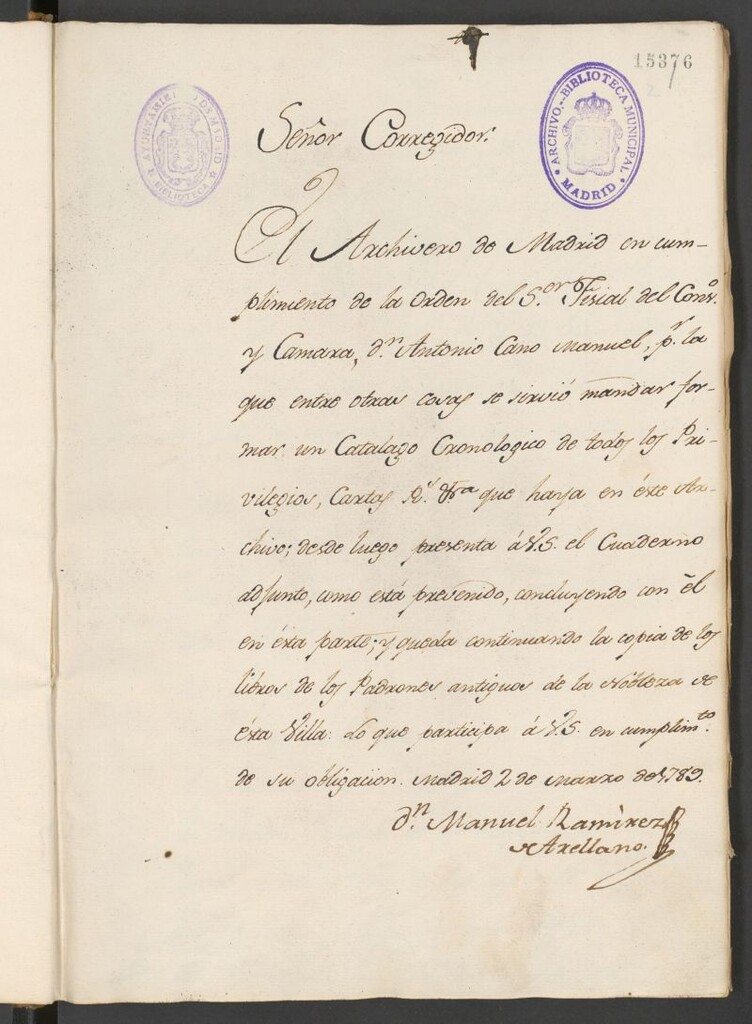 15376
AYUNTAMIENTO DE MADRID
BIBLIOTECA
ARCHIVO-BIBLIOTECA MUNICIPAL
MADRID
Señor Corregidor:
El Archivero de Madrid en cum-
plimiento de la Orden del S.or Fiscal del Cons.o
y Camara, d.n Antonio Cano Manuel, p.r la
que entre otras cosas se sirvió mandar for-
mar un Catalago Cronologico de todos los Pri-
vilegios, Cartas R.s &ra que haya en éste Ar-
chivo; desde luego presenta á V.S. el Cuaderno
adjunto, como está prevenido, concluyendo con él
en ésta parte; y queda continuando la copia de los
libros de los Padrones antiguos de la Nobleza de
ésta Villa: Lo que participa á V.S. en cumplim.to
de su obligacion. Madrid 2 de Marzo de 1789.
d.n Manuel Ramirez
de Arellano.